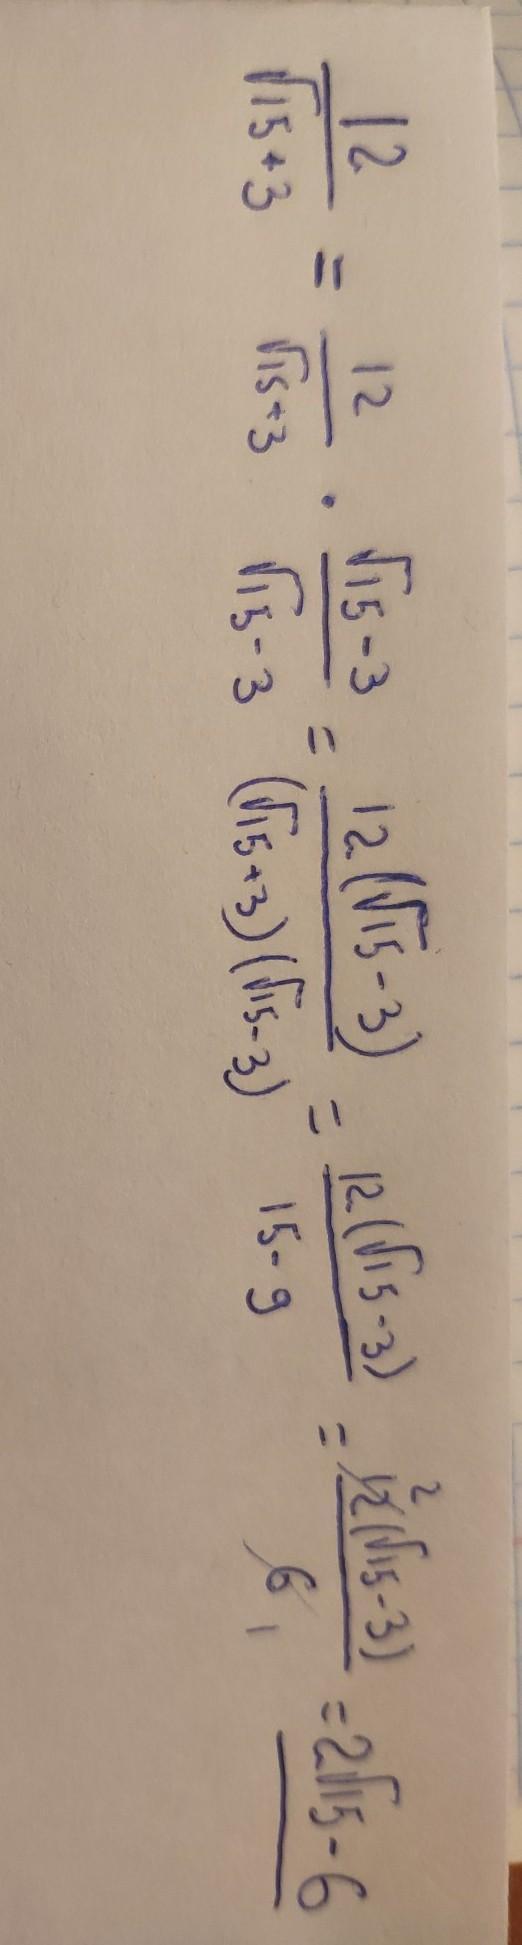 12/(√15+3) = 12/(√15+3) · (√15-3)/(√15-3) = 12(√15-3)/((√15+3)(√15-3)) = 12(√15-3)/(15-9) = 12 2(√15-3)/(6 1) = 2√15-6